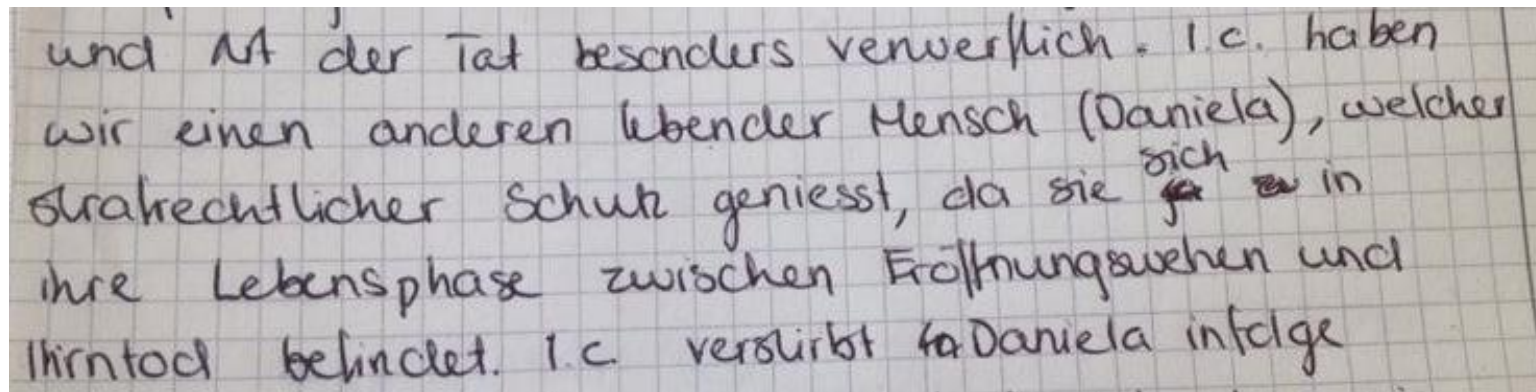 und Art der Tat besonders verwerflich. I.c. haben
wir einen anderen lebender Mensch (Daniela), welcher
strafrechtlicher Schutz geniesst, da sie sich in
ihre Lebensphase zwischen Eröffnungswehen und
Hirntod befindet. I.c. verstirbt Daniela infolge